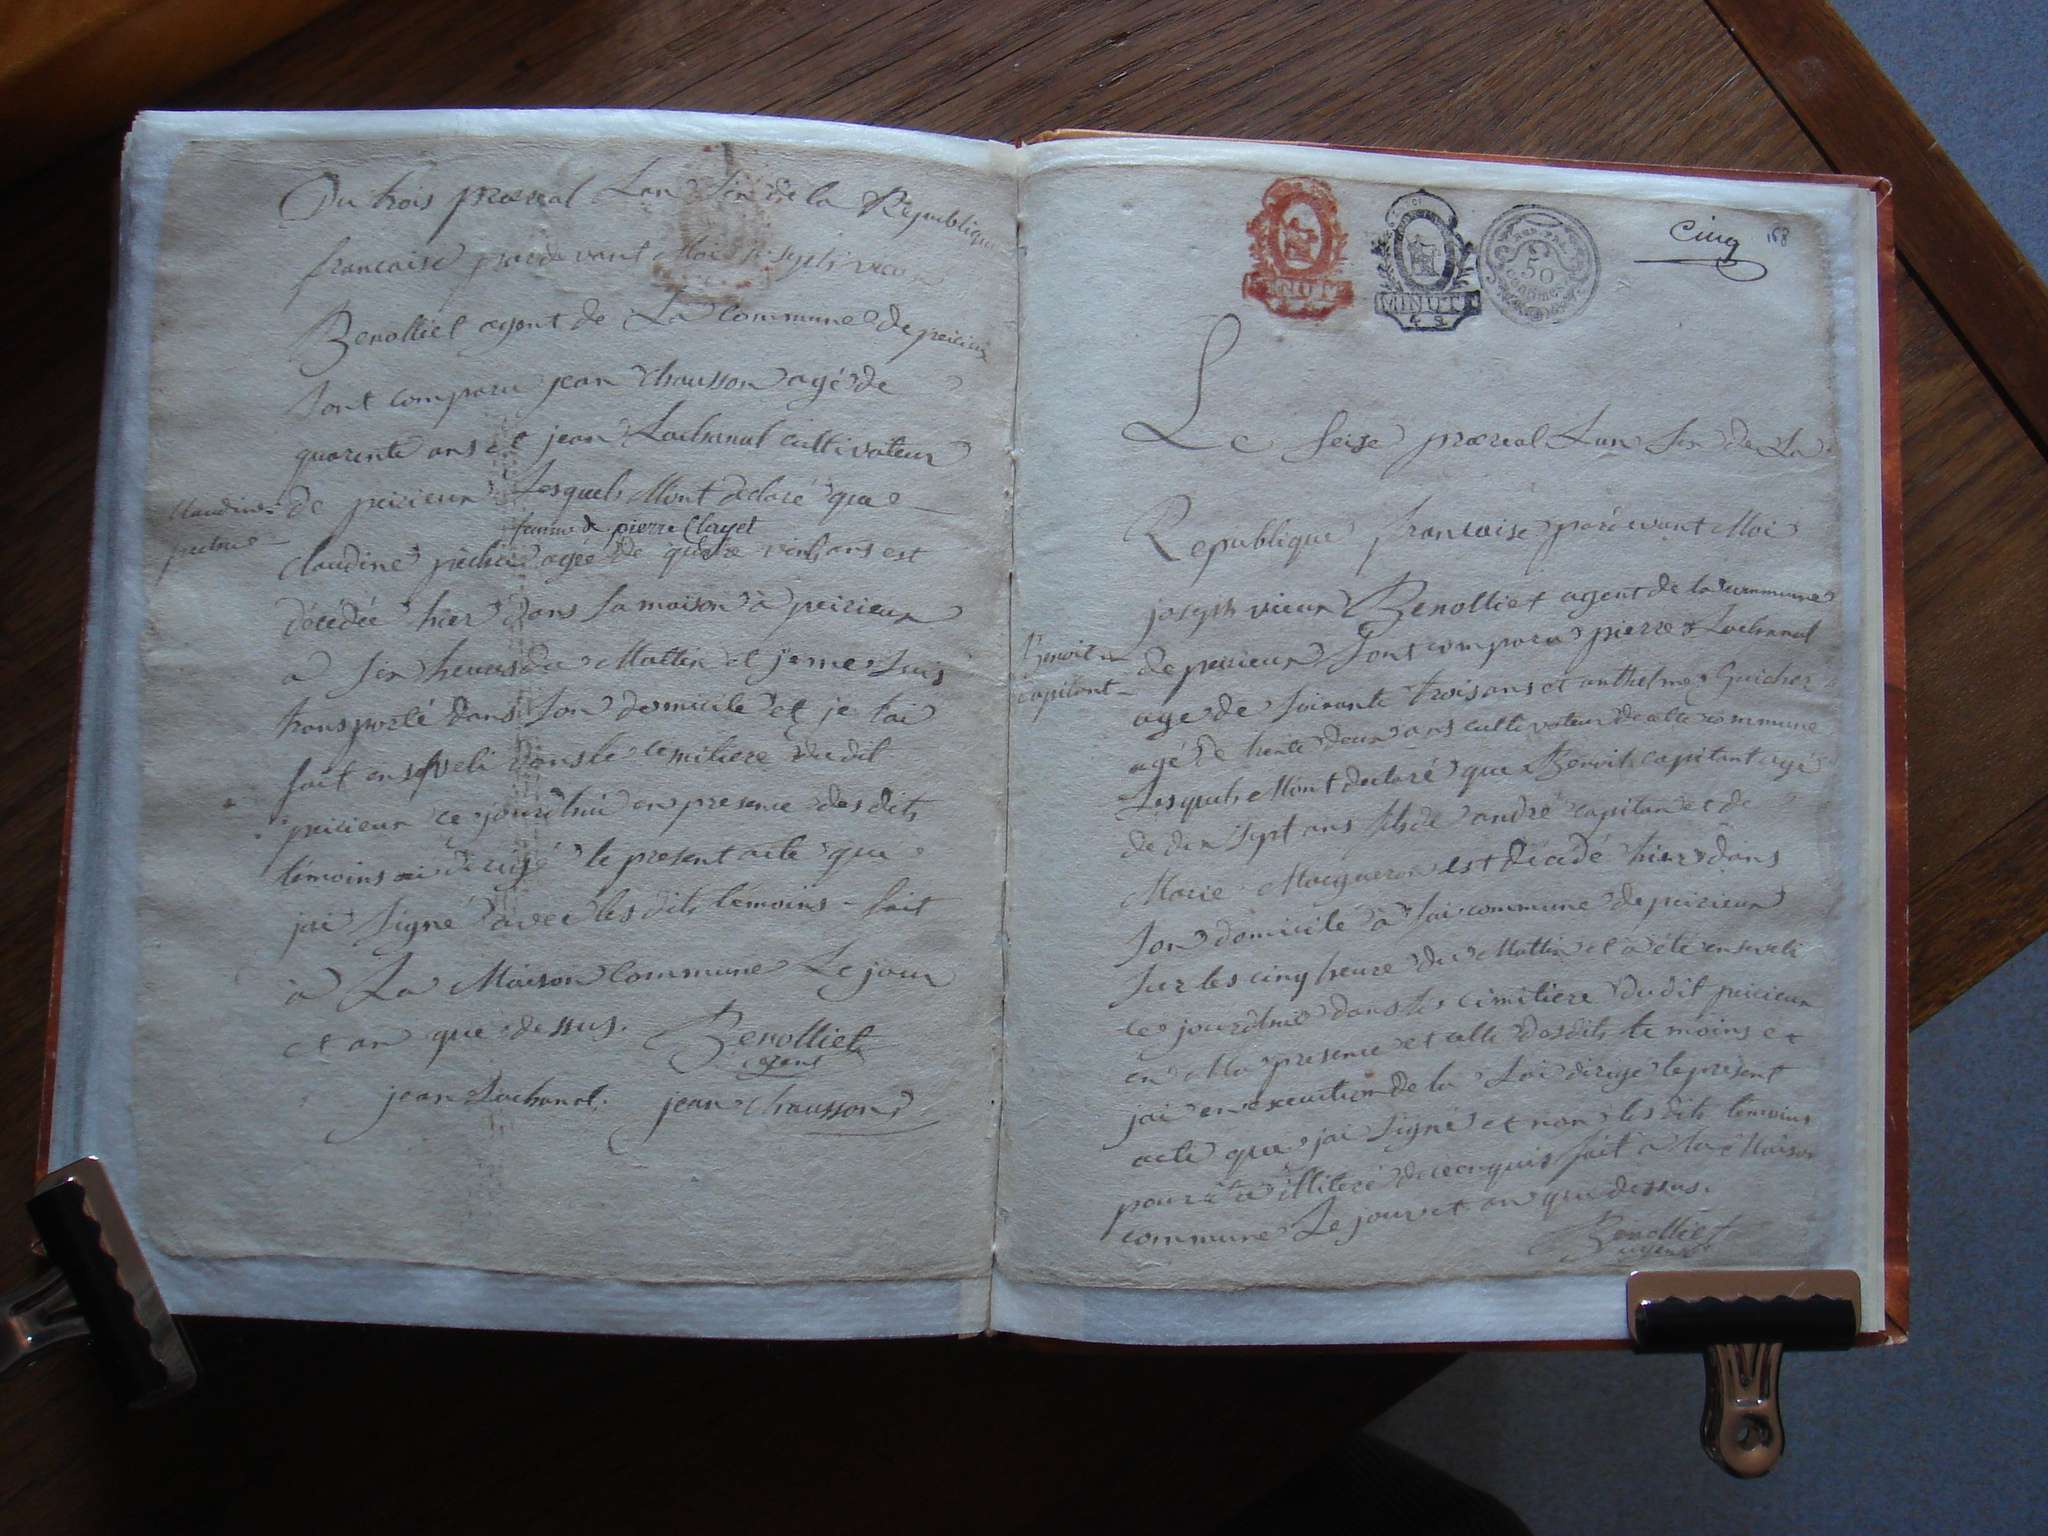 Du trois prereal Lan Six de la Republique
francaise pardevant Moi joseph vieux
Benolliet agent de La Commune de peirieux
Sont comparu jean Chausson agé de
quarente ans et jean Lachanal cultivateur
de peirieux Lesquels Mont declaré que
femme de pierre Clayet
Claudine
Claudine agee de quatre vints ans est
décédée hier dans sa maison à peirieux
a Six heures du Mattin et je me suis
transporté dans Son domicile et je lai
fait enseveli dans le cemitiere dudit
peirieux ce jourdhui en presence des dits
témoins ai dirigé le present acte que
jai Signé avec les dits temoins fait
à La Maison Commune Le jour
et an que dessus. Benolliet
agent
jean Lachanal. jean Chausson
MINUTE
MINUTE
50
centimes
Cinq
168
Le Seise prereal Lan Six de La
Republique francaise pardevant Moi
joseph vieux Benolliet agent de la commune
Benoit
Capitant
de peirieux Sont comparu pierre Lachanal
age de Soixante trois ans et anthelme Guicher
agé de trente deux ans cultivateur de cette commune
Lesquels Mont declaré que Benoit capitant agé
de dix sept ans fils de andré capitan et de
Marie est décédé hier dans
Son domicile à commune de peirieux
Sur les cinq heure du Mattin et a été enseveli
ce jourdhui dans le cimitiere dudit peirieux
en Ma presence et celle desdits temoins et
jai en execution de la Loi dirigé le present
acte que jai Signé et non les dits temoins
pour être illiteré de ce enquis fait a La Maison
commune Le jour et an que dessus.
Benolliet
agent